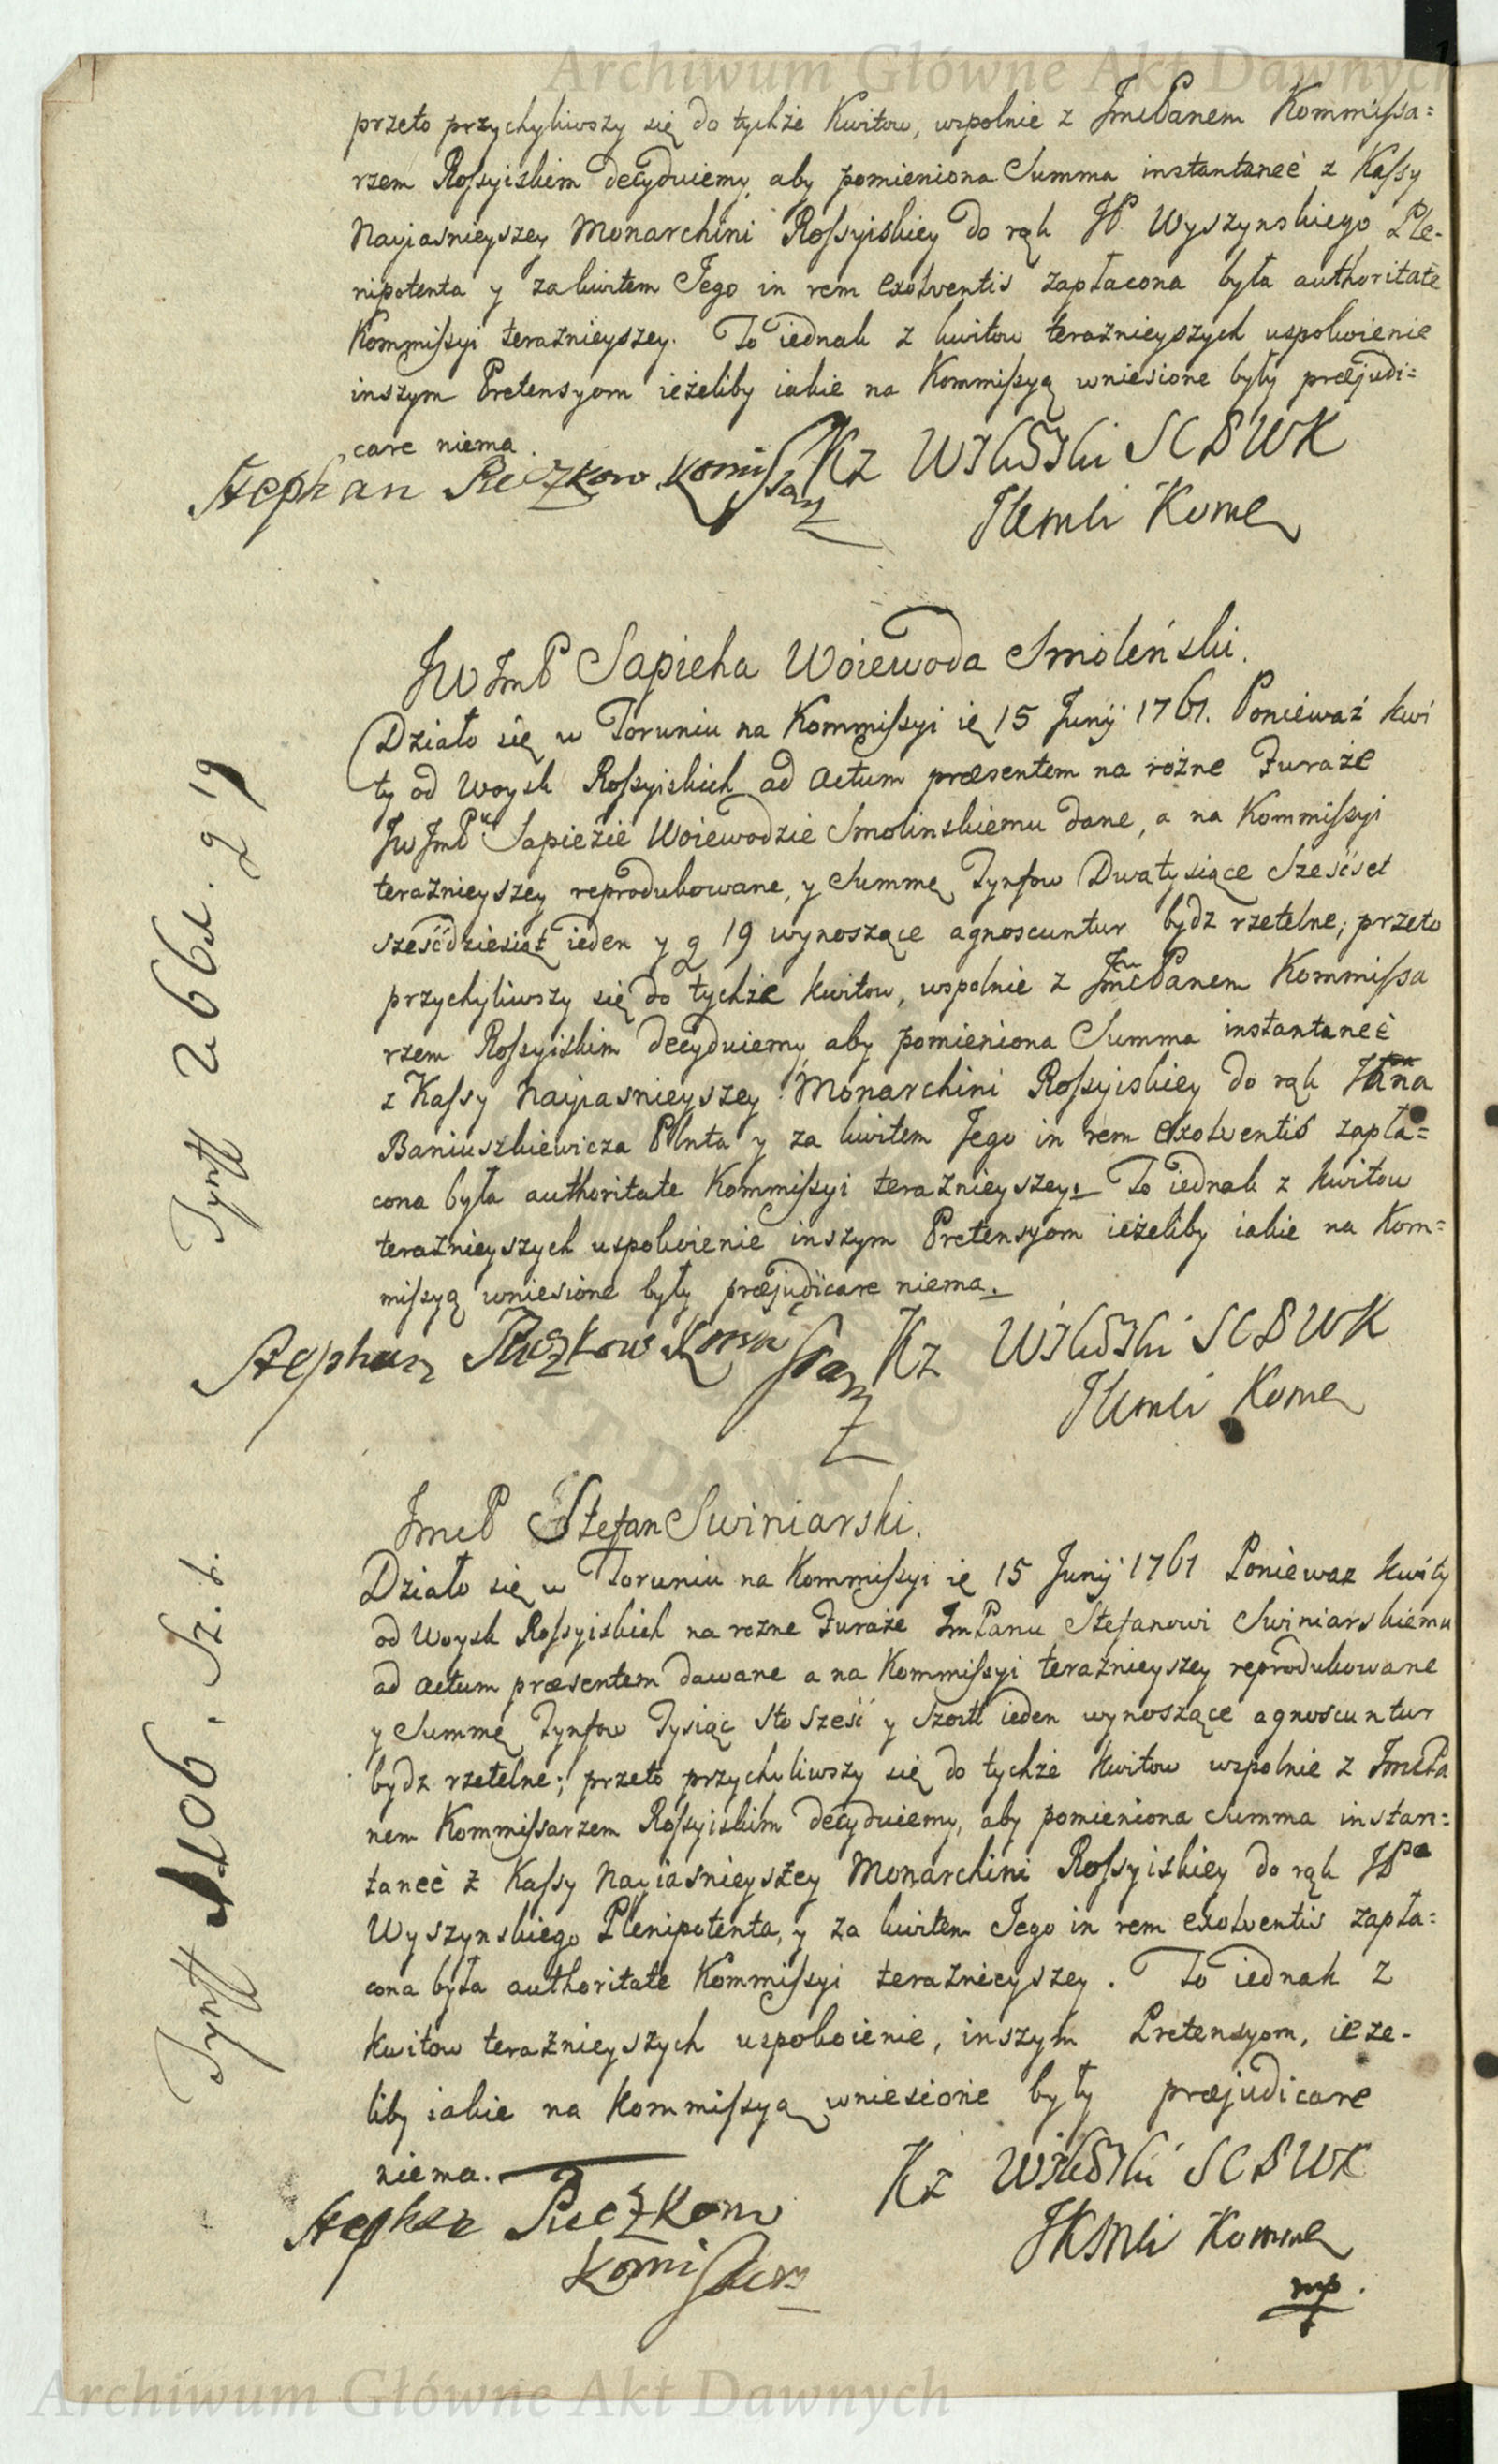 Archiwum Główne Akt Dawnych
przeto przychyliwszy się do tychże Kwitow, wspolnie z JmcPanem Kommissa=
rzem Rossyiskim decyduiemy aby pomieniona Summa instantaneè z Kassy
Nayiasnieyszey Monarchini Rossyiskiey do rąk JP Wyszynskiego Ple-
nipotenta y za kwitem Jego in rem exolventis zapłacona była authoritate
Kommissyi teraznieyszey. To iednak z kwitow teraznieyszych uspokoienie
inszym Pretensyom ieżeliby iakie na Kommissyą wniesione były præjudi=
care niema.
Stephan Puczkow Komissarz Kz SCBWK
Kome
JWJmP Sapieha Woiewoda Smoleński.
Działo się w Toruniu na Kommissyi ię 15 Junij 1761. Ponieważ kwi
ty od Woysk Rossyiskich ad Actum præsentem na rożne Furaże
JwJmPu Sapieżie Woiewodzie Smolinskiemu dane, a na Kommissyi
teraznieyszey reprodukowane, y Summę Tynfow Dwatysiące Sześćset
sześćdziesiąt ieden y g 19 wynoszące agnoscuntur bydz rzetelne; przeto
przychyliwszy się do tychże kwitow, wspolnie z JmcPanem Kommissa
rzem Rossyiskim decyduiemy aby pomieniona Summa instantaneè
z Kassy Nayiasnieyszey Monarchini Rossyiskiey do rąk JPana
Baniuszkiewicza Plnta y za kwitem Jego in rem exolventis zapła=
cona była authoritate Kommissyi teraznieyszey. To iednak z kwitow
teraznieyszych uspokoienie inszym Pretensyom ieżeliby iakie na Kom=
missyą wniesione były præjudicare niema.
Stephan Puczkow Komissarz Kz SCBWK
Kome
Tynff 2661. g 19
JmcP Stefan Swiniarski.
Działo się w Toruniu na Kommissyi ię 15 Junij 1761 Poniewaz kwity
od Woysk Rossyiskich na rozne Furaże JmPanu Stefanowi Swiniarskiemu
ad Actum præsentem dawane a na Kommissyi teraznieyszey reprodukowane
y Summę Tynfow Tysiąc sto sześć y szostk ieden wynoszące agnoscuntur
bydz rzetelne; przeto przychyliwszy się do tychże kwitow wspolnie z JmcPa
nem Kommissarzem Rossyiskim decyduiemy, aby pomieniona Summa instan=
taneè z Kassy Nayiasnieyszey Monarchini Rossyiskiey do rąk JPa
Wyszynskiego Plenipotenta, y za kwitem Jego in rem exolventis zapła=
cona była authoritate Kommissyi teraznieyszey. To iednak z
kwitow teraznieyszych uspokoienie, inszym Pretensyom, ieze-
liby iakie na Kommissyą wniesione były præjudicare
niema.
Stephan Puczkow Kz SCBWK
Komissarz Komme
mp.
Tynff 1106. Sz. 1.
Archiwum Główne Akt Dawnych